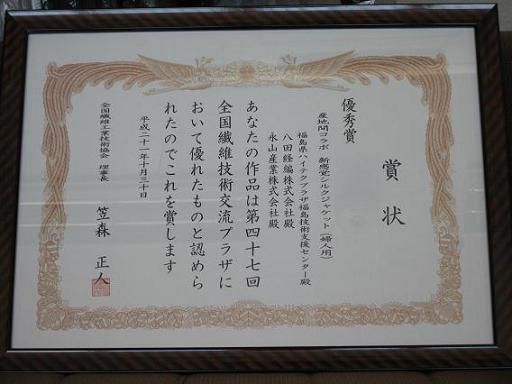 賞状
優秀賞
産地間コラボ 新感覚シルクジャケット(婦人用)
福島県ハイテクプラザ福島技術支援センター殿
八田経編株式会社殿
永山産業株式会社殿
あなたの作品は第四十七回
全国繊維技術交流プラザに
おいて優れたものと認めら
れたのでこれを賞します
平成二十一年十月三十日
全国繊維工業技術協会 理事長
笠森 正人